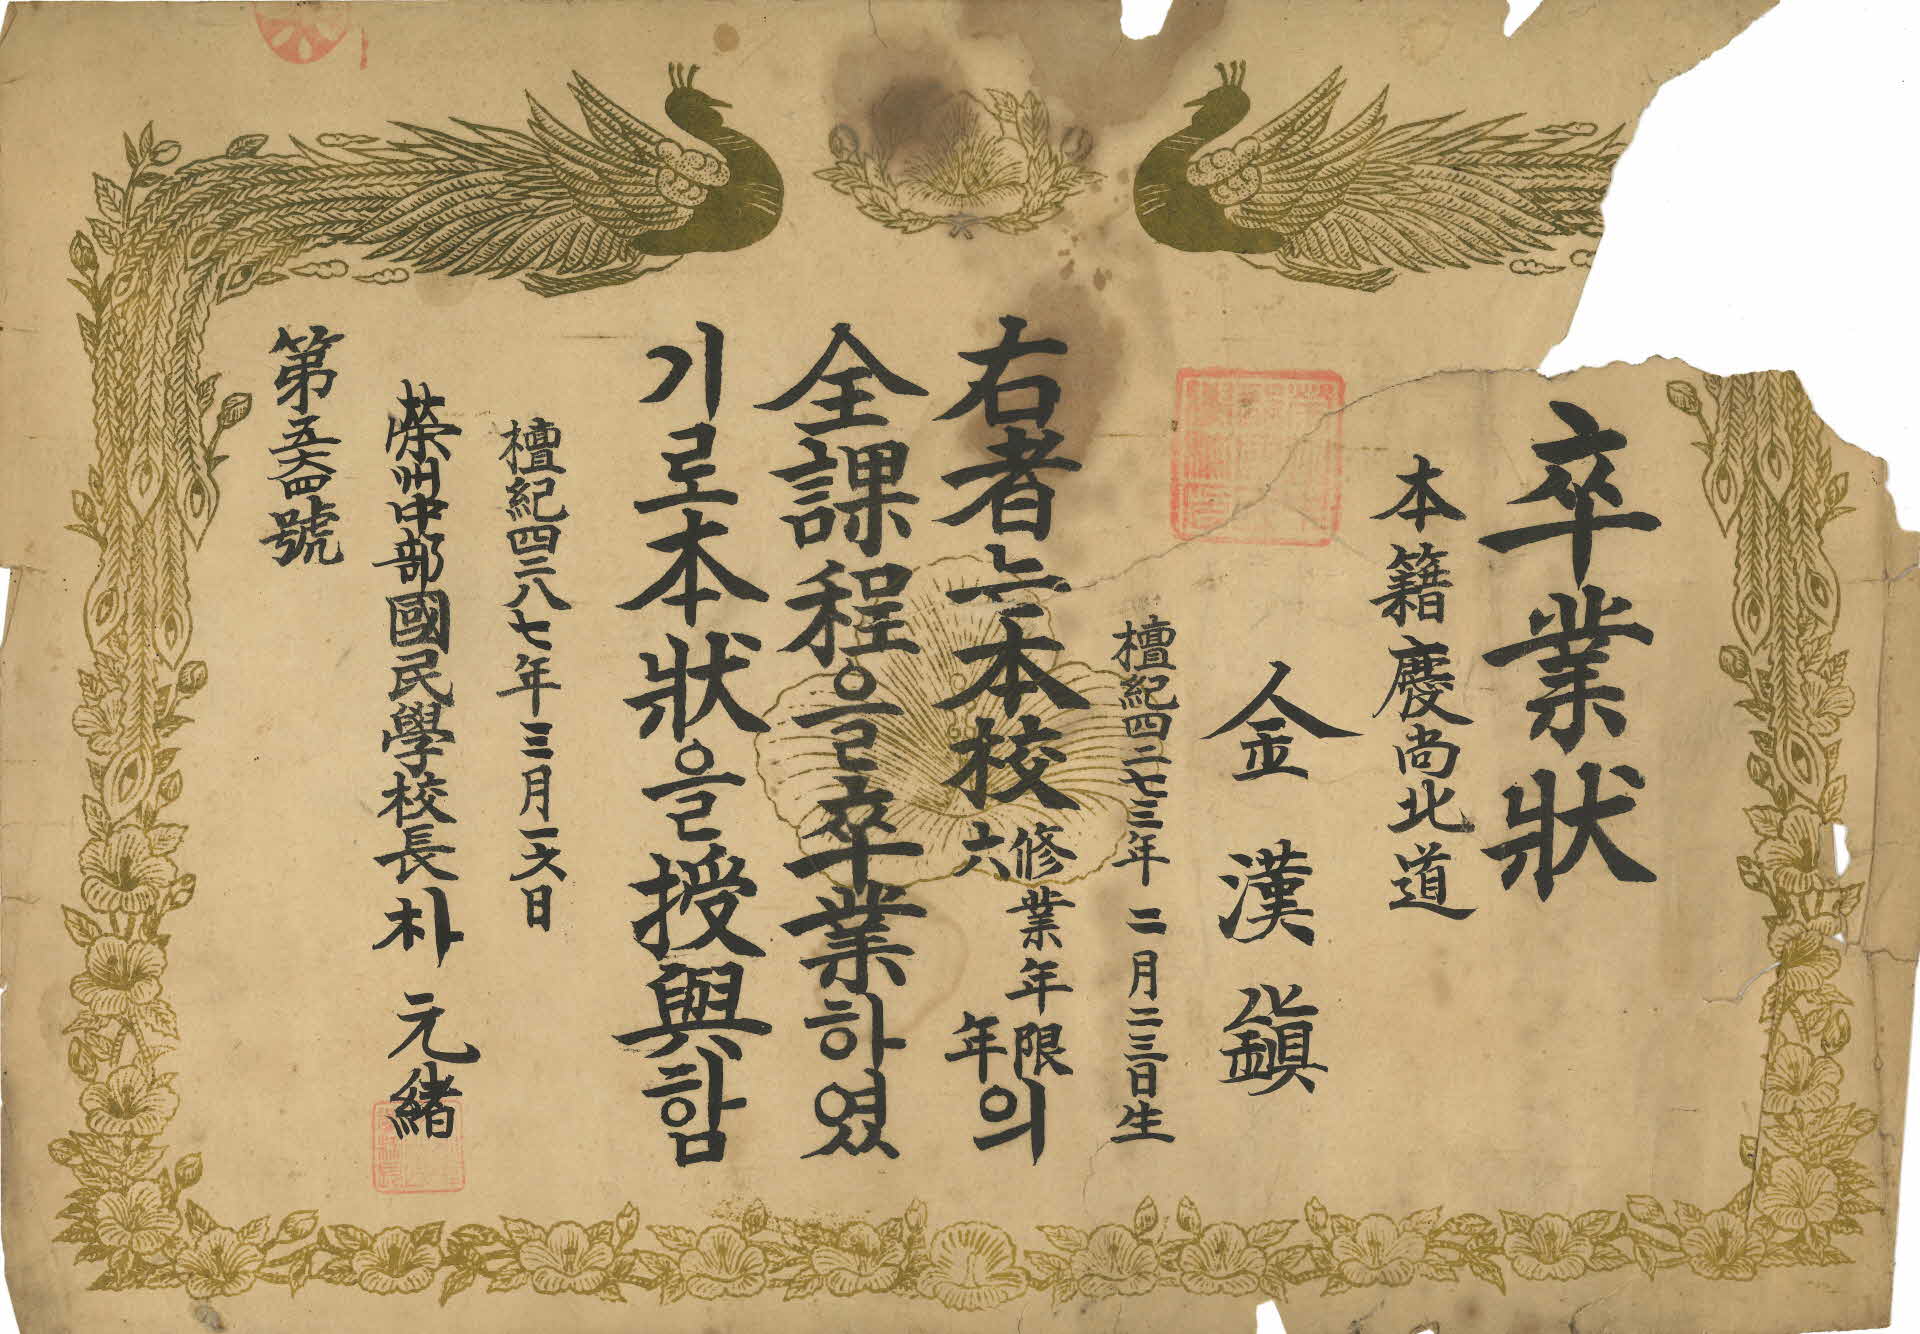 卒業狀
本籍慶尚北道
金漢鎭
檀紀四二七三年 二月二三日生
右者는本校 修業年限 六年 의
全課程을卒業하였
기로本狀을授與함
檀紀四二八七年三月一六日
榮州中部國民學校長 朴元緖
第五六四號